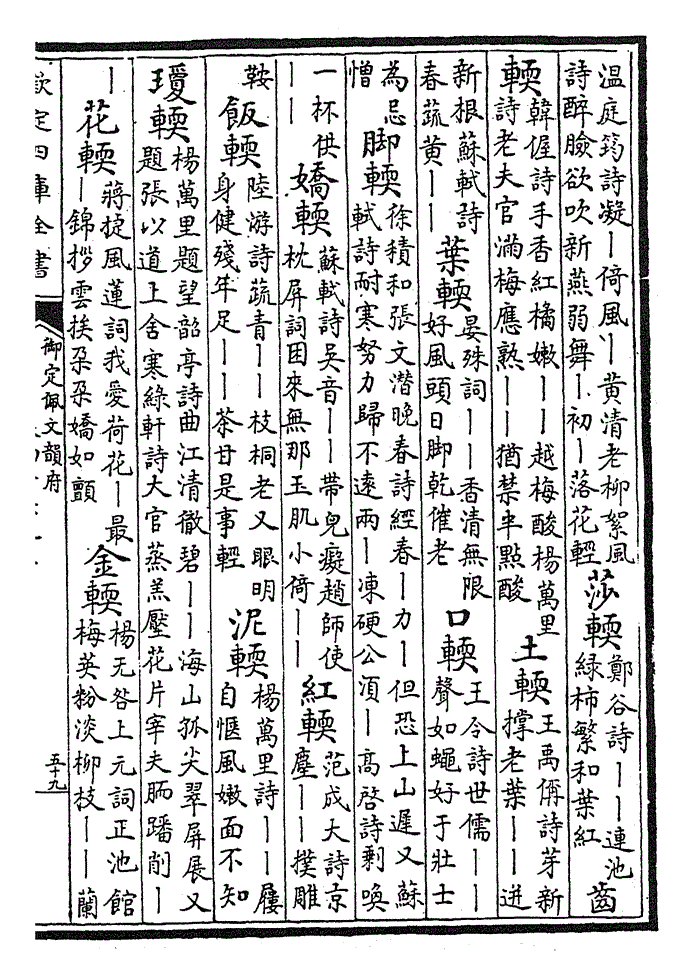 温庭筠詩凝｜倚風｜黄清老柳絮風
詩醉臉欲吹新燕弱舞｜初｜落花輕
莎輭
鄭谷詩｜｜連池
緑柿繁和葉紅
齒
輭
韓偓詩手香紅橘嫩｜｜越梅酸楊萬里
詩老夫官滿梅應熟｜｜猶禁半點酸
土輭
王禹偁詩芽新
撑老葉｜｜迸
新根蘇軾詩
春蔬黄｜｜
葉輭
晏殊詞｜｜香清無限
好風頭日脚乾催老
口輭
王令詩世儒｜｜
聲如蠅好于壯士
為忌
憎
脚輭
徐積和張文潛晚春詩經春｜力｜但恐上山遲又蘇
軾詩耐寒努力歸不逺兩｜凍硬公湏｜高啓詩剩喚
一杯供
｜｜
嬌輭
蘇軾詩吴音｜｜帶兒癡趙師使
枕屏詞困來無那玉肌小倚｜｜
紅輭
范成大詩京
塵｜｜撲雕
鞍
飯輭
陸游詩蔬青｜｜枝桐老又眼明
身健殘年足｜｜茶甘是事輕
泥輭
楊萬里詩｜｜屨
自愜風嫩面不知
瓊輭
楊萬里題望韶亭詩曲江清徹碧｜｜海山孤尖翠屏展又
題張以道上舍寒緑軒詩大官蒸羔壓花片宰夫胹蹯削｜
｜
花輭
蔣捷風蓮詞我愛荷花｜最
｜錦拶雲挨朶朶嬌如顫
金輭
楊无咎上元詞正池館
梅英粉淡柳枝｜｜蘭
欽定四庫全書
御定佩文韻府
五十九